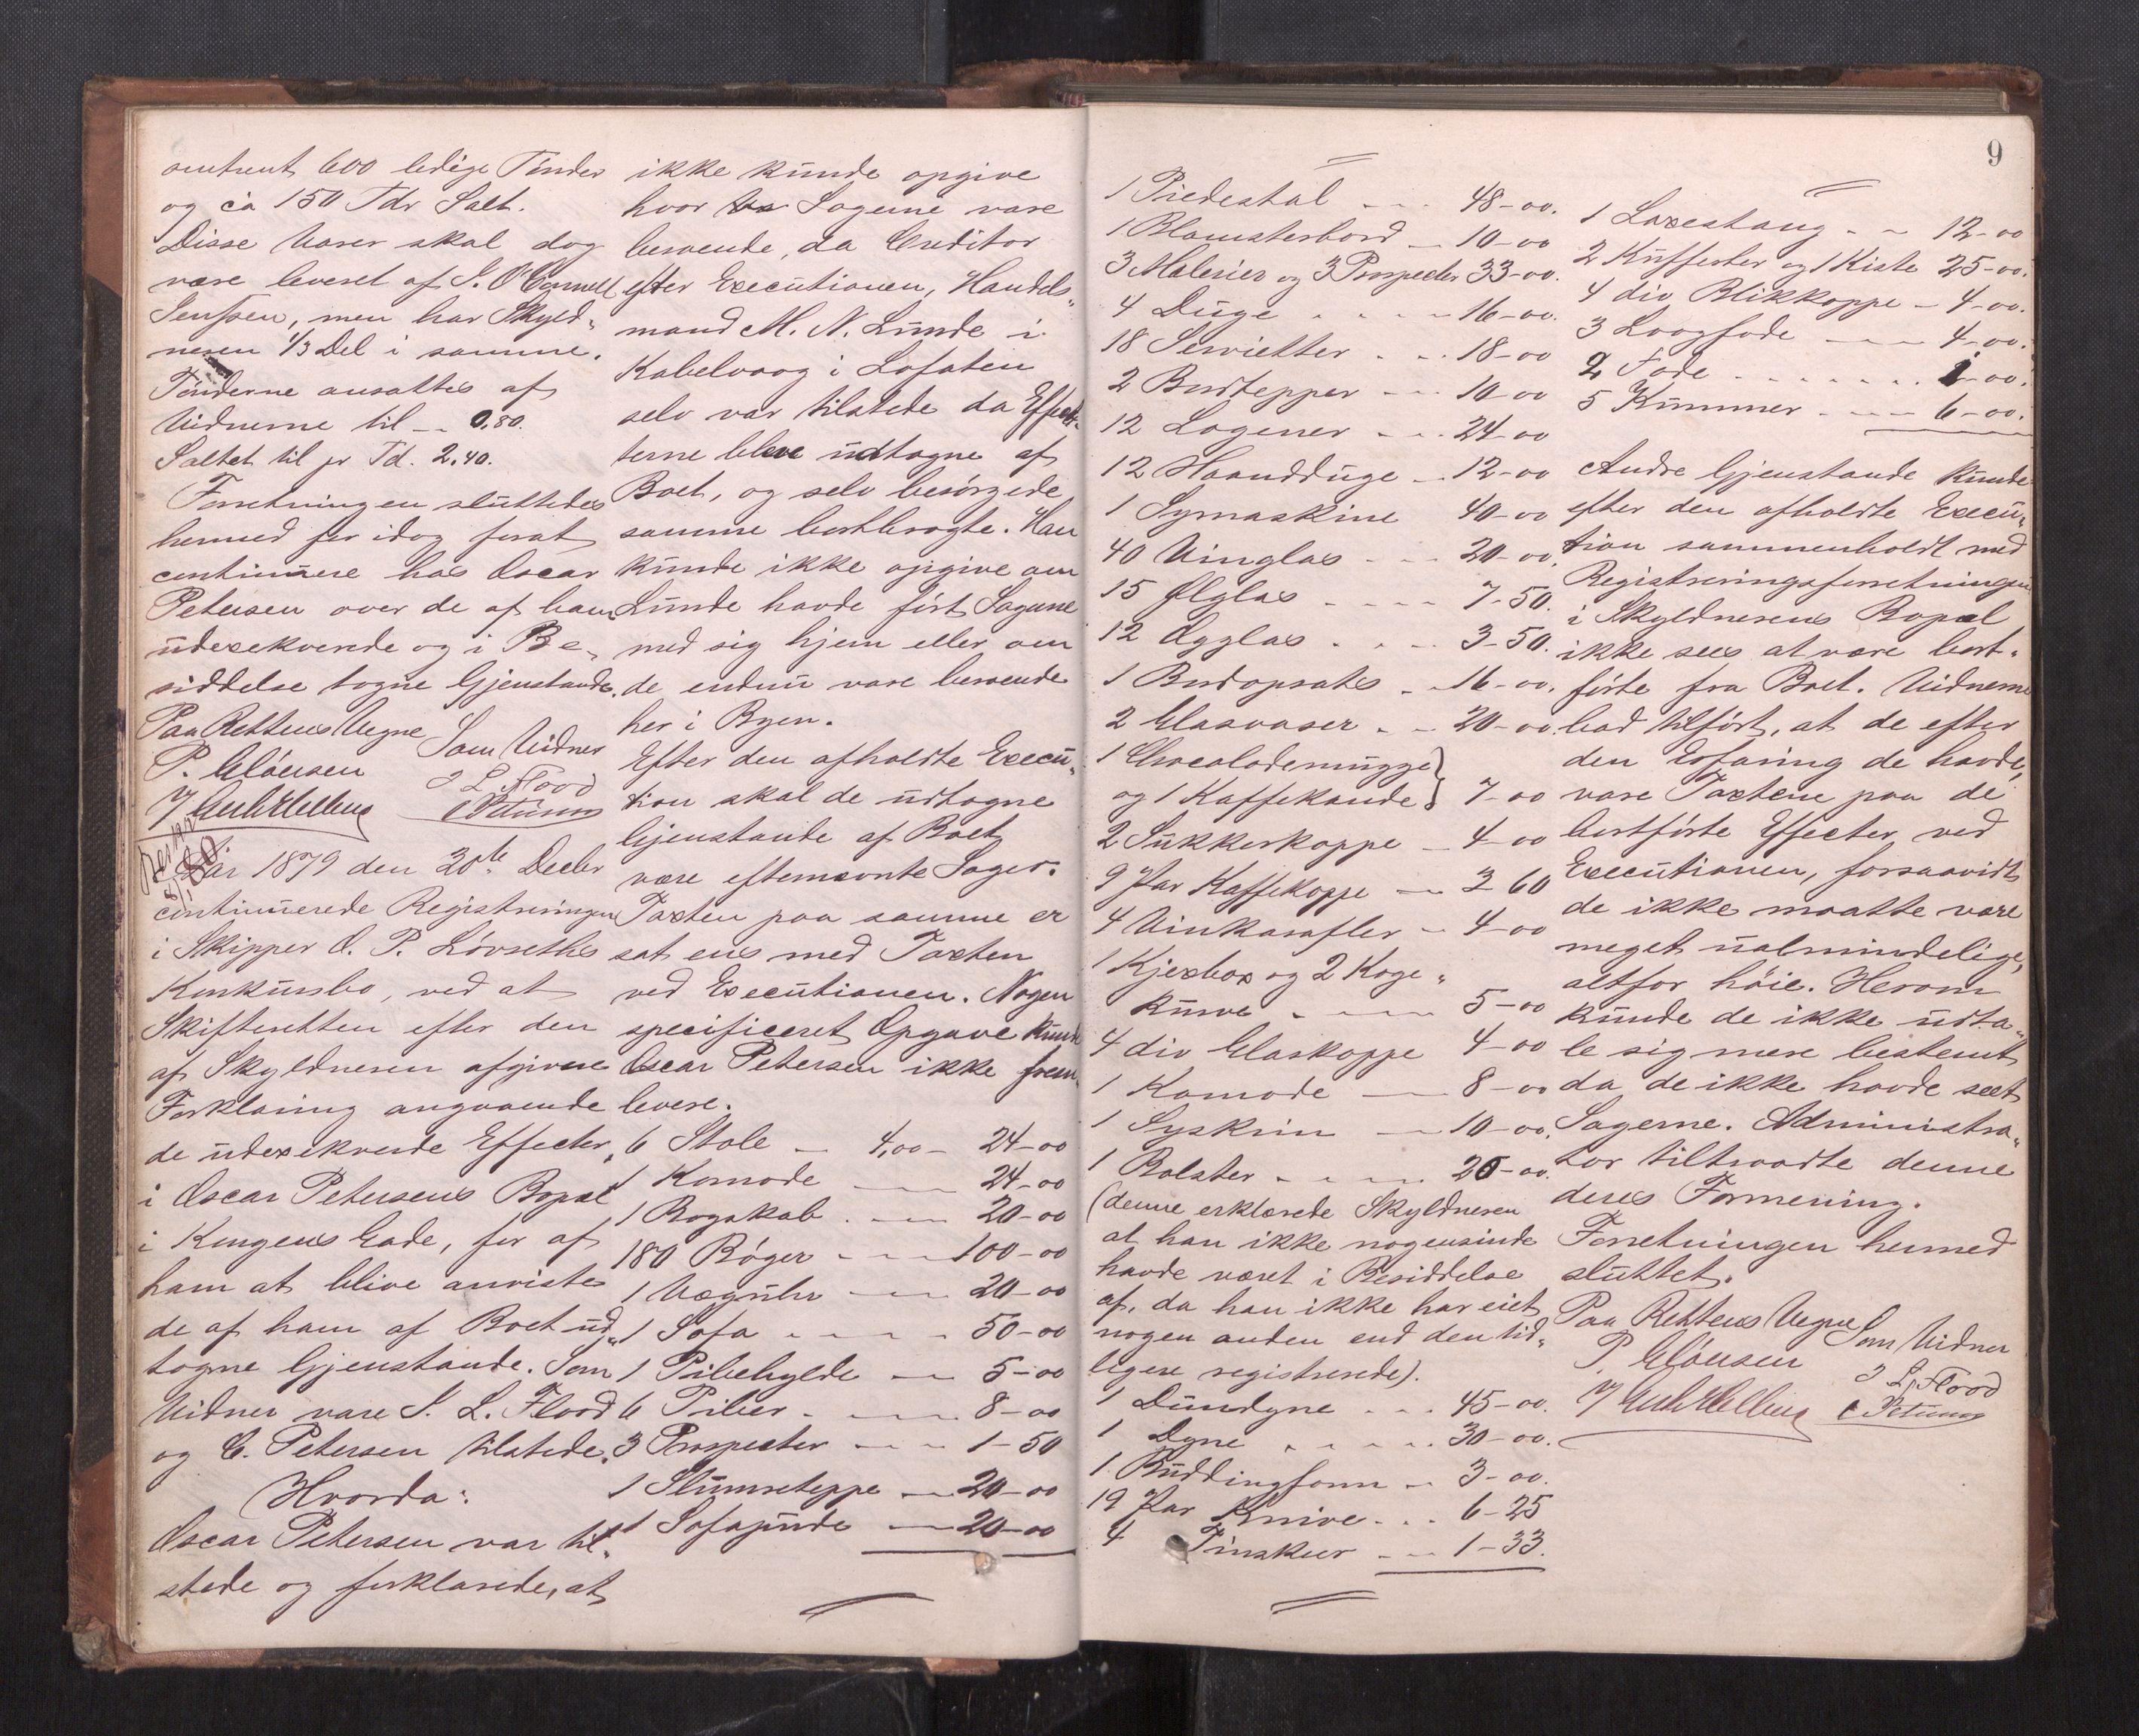 omtrent 600 ledige Tønder
og ca 150 Tdr Salt.
Disse Varer skal dog
være leveret af S. O'Connell
Jenssen, men har Skyld„
neren 1/3 Del i samme.
Tønderne ansattes af
Vidnerne til — 0,80.
Saltet til pr Td. 2,40.
Forretningen sluttedes
hermed for idag forat
continuere hos Oscar
Petersen over de af ham
udexekverede og i Be„
siddelse tagne Gjenstande.
Paa Rettens Vegne
Som Vidner
P. Clausen
J L Flood
C Petersen
Aar 1879 den 30te Decbr
continuerede Registreringen
i Skipper O. P. Lövseths
Konkursbo, ved at
Skifteretten efter den
af Skyldneren afgivne
Forklaring angaaende
de udexekverede Effecter,
i Oscar Petersens Bopæl
i Kongens Gade, for af
ham at blive anviste
de af ham af Boet ud„
tagne Gjenstande. Som
Vidner vare J. L. Flood
og C. Petersen tilstede.
Hvorda:
Oscar Petersen var til„
stede og forklarede, at
ikke kunde opgive
hvor Sagerne vare
beroende, da Creditor
efter Executionen, Handels„
mand M. N. Lunde i
Kabelvaag i Lofoten
selv var tilstede da Effec„
terne bleve udtagne af
Boet, og selv besørgede
samme bortbragte. Han
kunde ikke opgive om
Lunde havde ført Sagerne
med sig hjem eller om
de endnu vare beroende
her i Byen.
Efter den afholdte Execu„
tion skal de udtagne
Gjenstande af Boet
være efternævnte Sager.
Taxten paa samme er
sat ens med Taxten
ved Executionen. Nogen
specificeret Opgave kunde
Oscar Petersen ikke frem„
levere.
6 Stole — 4,00 — 24-00
1 Komode — 24-00
1 Bogskab — 20-00
180 Bøger — 100-00
1 Væguhr — 20-00
1 Sofa — 50-00
1 Pibehylde — 5-00
6 Piber — 8-00
3 Prospecter — 1-50
1 Slumreteppe — 20-00
1 Sofapude — 20-00
9
1 Piedestal — 48-00.
1 Blomsterbord — 10-00
3 Malerier og 3 Prospecter 33-00.
4 Duge — 16-00.
18 Servietter — 18-00
2 Bordtepper — 10-00
12 Lagener — 24-00
12 Haandduge — 12-00
1 Symaskine 40-00
40 Vinglas — 20-00.
15 Ølglas — 7-50.
12 Ægglas — 3-50.
1 Bordopsats — 16-00.
2 Glasvaser — 20-00.
1 Chocolademugge }
og 1 Kaffekande } 7-00
2 Sukkerkoppe — 4-00
9 Par Kaffekoppe — 3 60
4 Vinkarafler — 4-00
1 Kjexbox og 2 Kage„
kurve — 5-00
4 div Glaskoppe 4-00
1 Komode — 8-00
1 Syskrin — 10-00.
1 Bolster — 20-00.
(denne erklærede Skyldneren
at han ikke nogensinde
havde været i Besiddelse
af, da han ikke har eiet
nogen anden end den tid„
ligere registrerede).
1 Dundyne — 45-00.
1 Dyne — 30-00.
1 Buddingform — 3-00.
19 Par Knive — 6-25
4 Tinskeer — 1-33.
1 Laxestang — 12-00
2 Kufferter og 1 Kiste 25-00.
4 div Blikkoppe — 4-00.
3 Laagfade — 4-00.
2 Fade — 1-00.
5 Kummer — 6-00.
Andre Gjenstande kunde
efter den afholdte Execu„
tion sammenholdt med
Registreringsforretningen
i Skyldnerens Bopæl
ikke sees at være bort„
førte fra Boet. Vidnerne
bad tilført, at de efter
den Erfaring de havde,
vare Taxterne paa de
bortførte Effecter ved
Executionen, forsaavidt
de ikke maatte være
meget ualmindelige,
altfor høie. Herom
kunde de ikke udta„
le sig mere bestemt
da de ikke havde seet
Sagerne. Administra„
tor tiltraadte denne
deres Formening.
Forretningen hermed
sluttet.
Paa Rettens Vegne
Som Vidner
P. Clausen
J L Flood
C Petersen